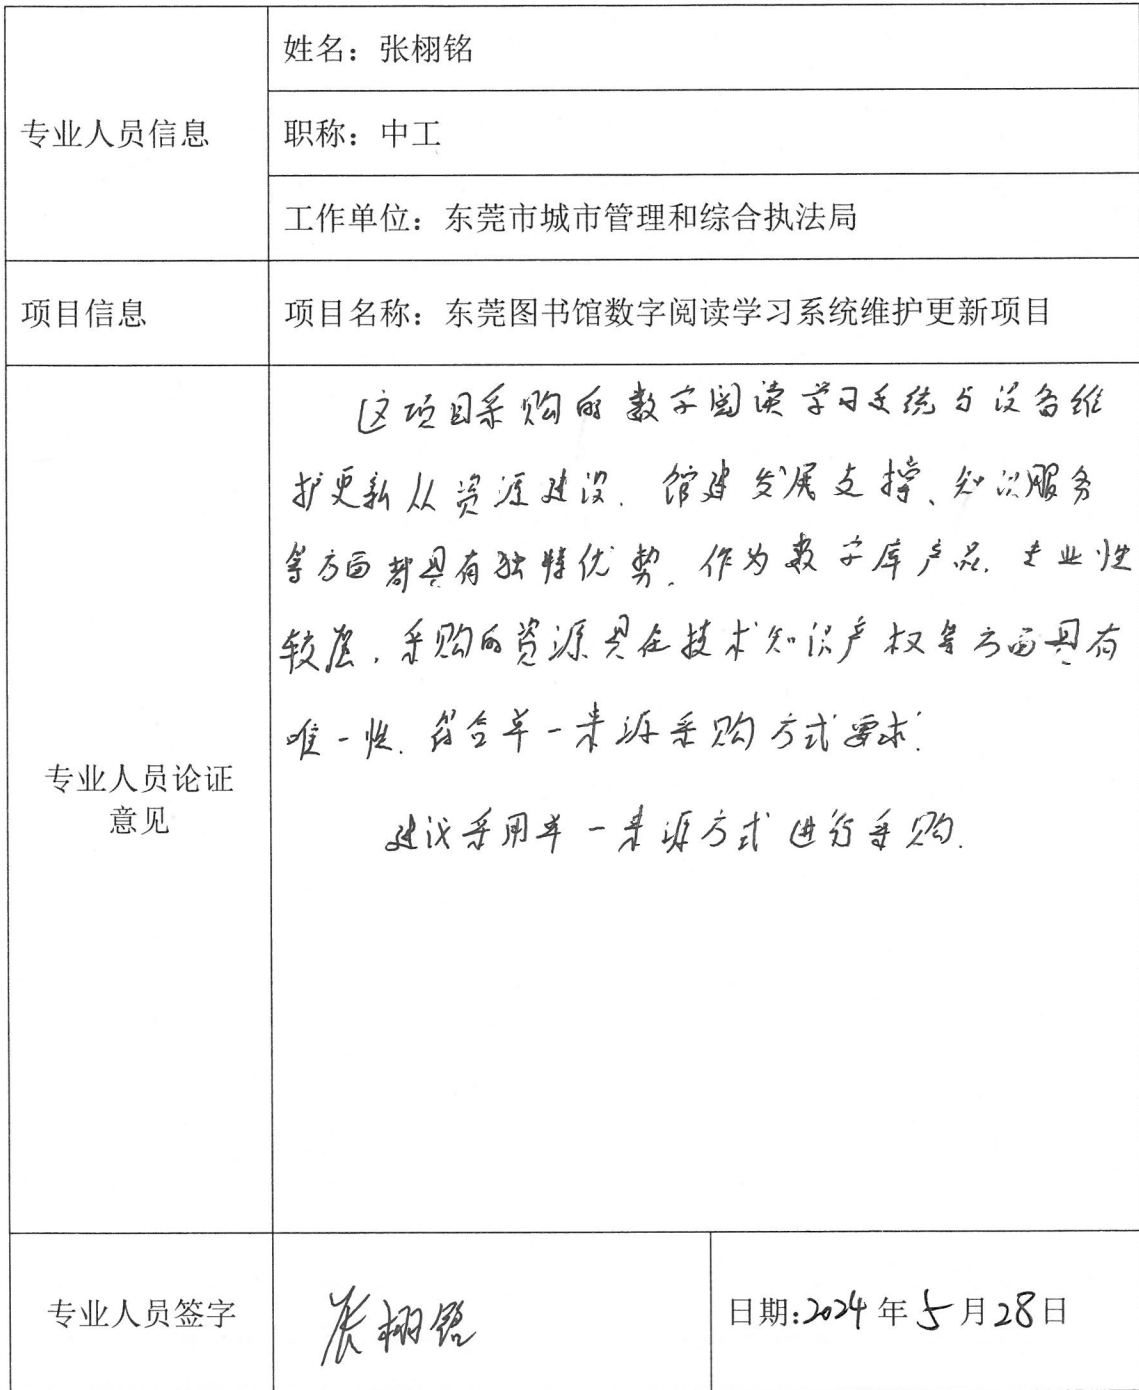 姓名：张栩铭
专业人员信息
职称：中工
工作单位：东莞市城市管理和综合执法局
项目信息
项目名称：东莞图书馆数字阅读学习系统维护更新项目
这项目采购的数字阅读学习系统与设备维
护更新从资源建设、馆建发展支撑、知识服务
等方面都具有独特优势。作为数字库产品，专业性
较高，采购的资源具在技术知识产权等方面具有
唯一性，符合单一来源采购方式要求。
建议采用单一来源方式进行采购。
专业人员论证
意见
专业人员签字
张栩铭
日期:2024年5月28日